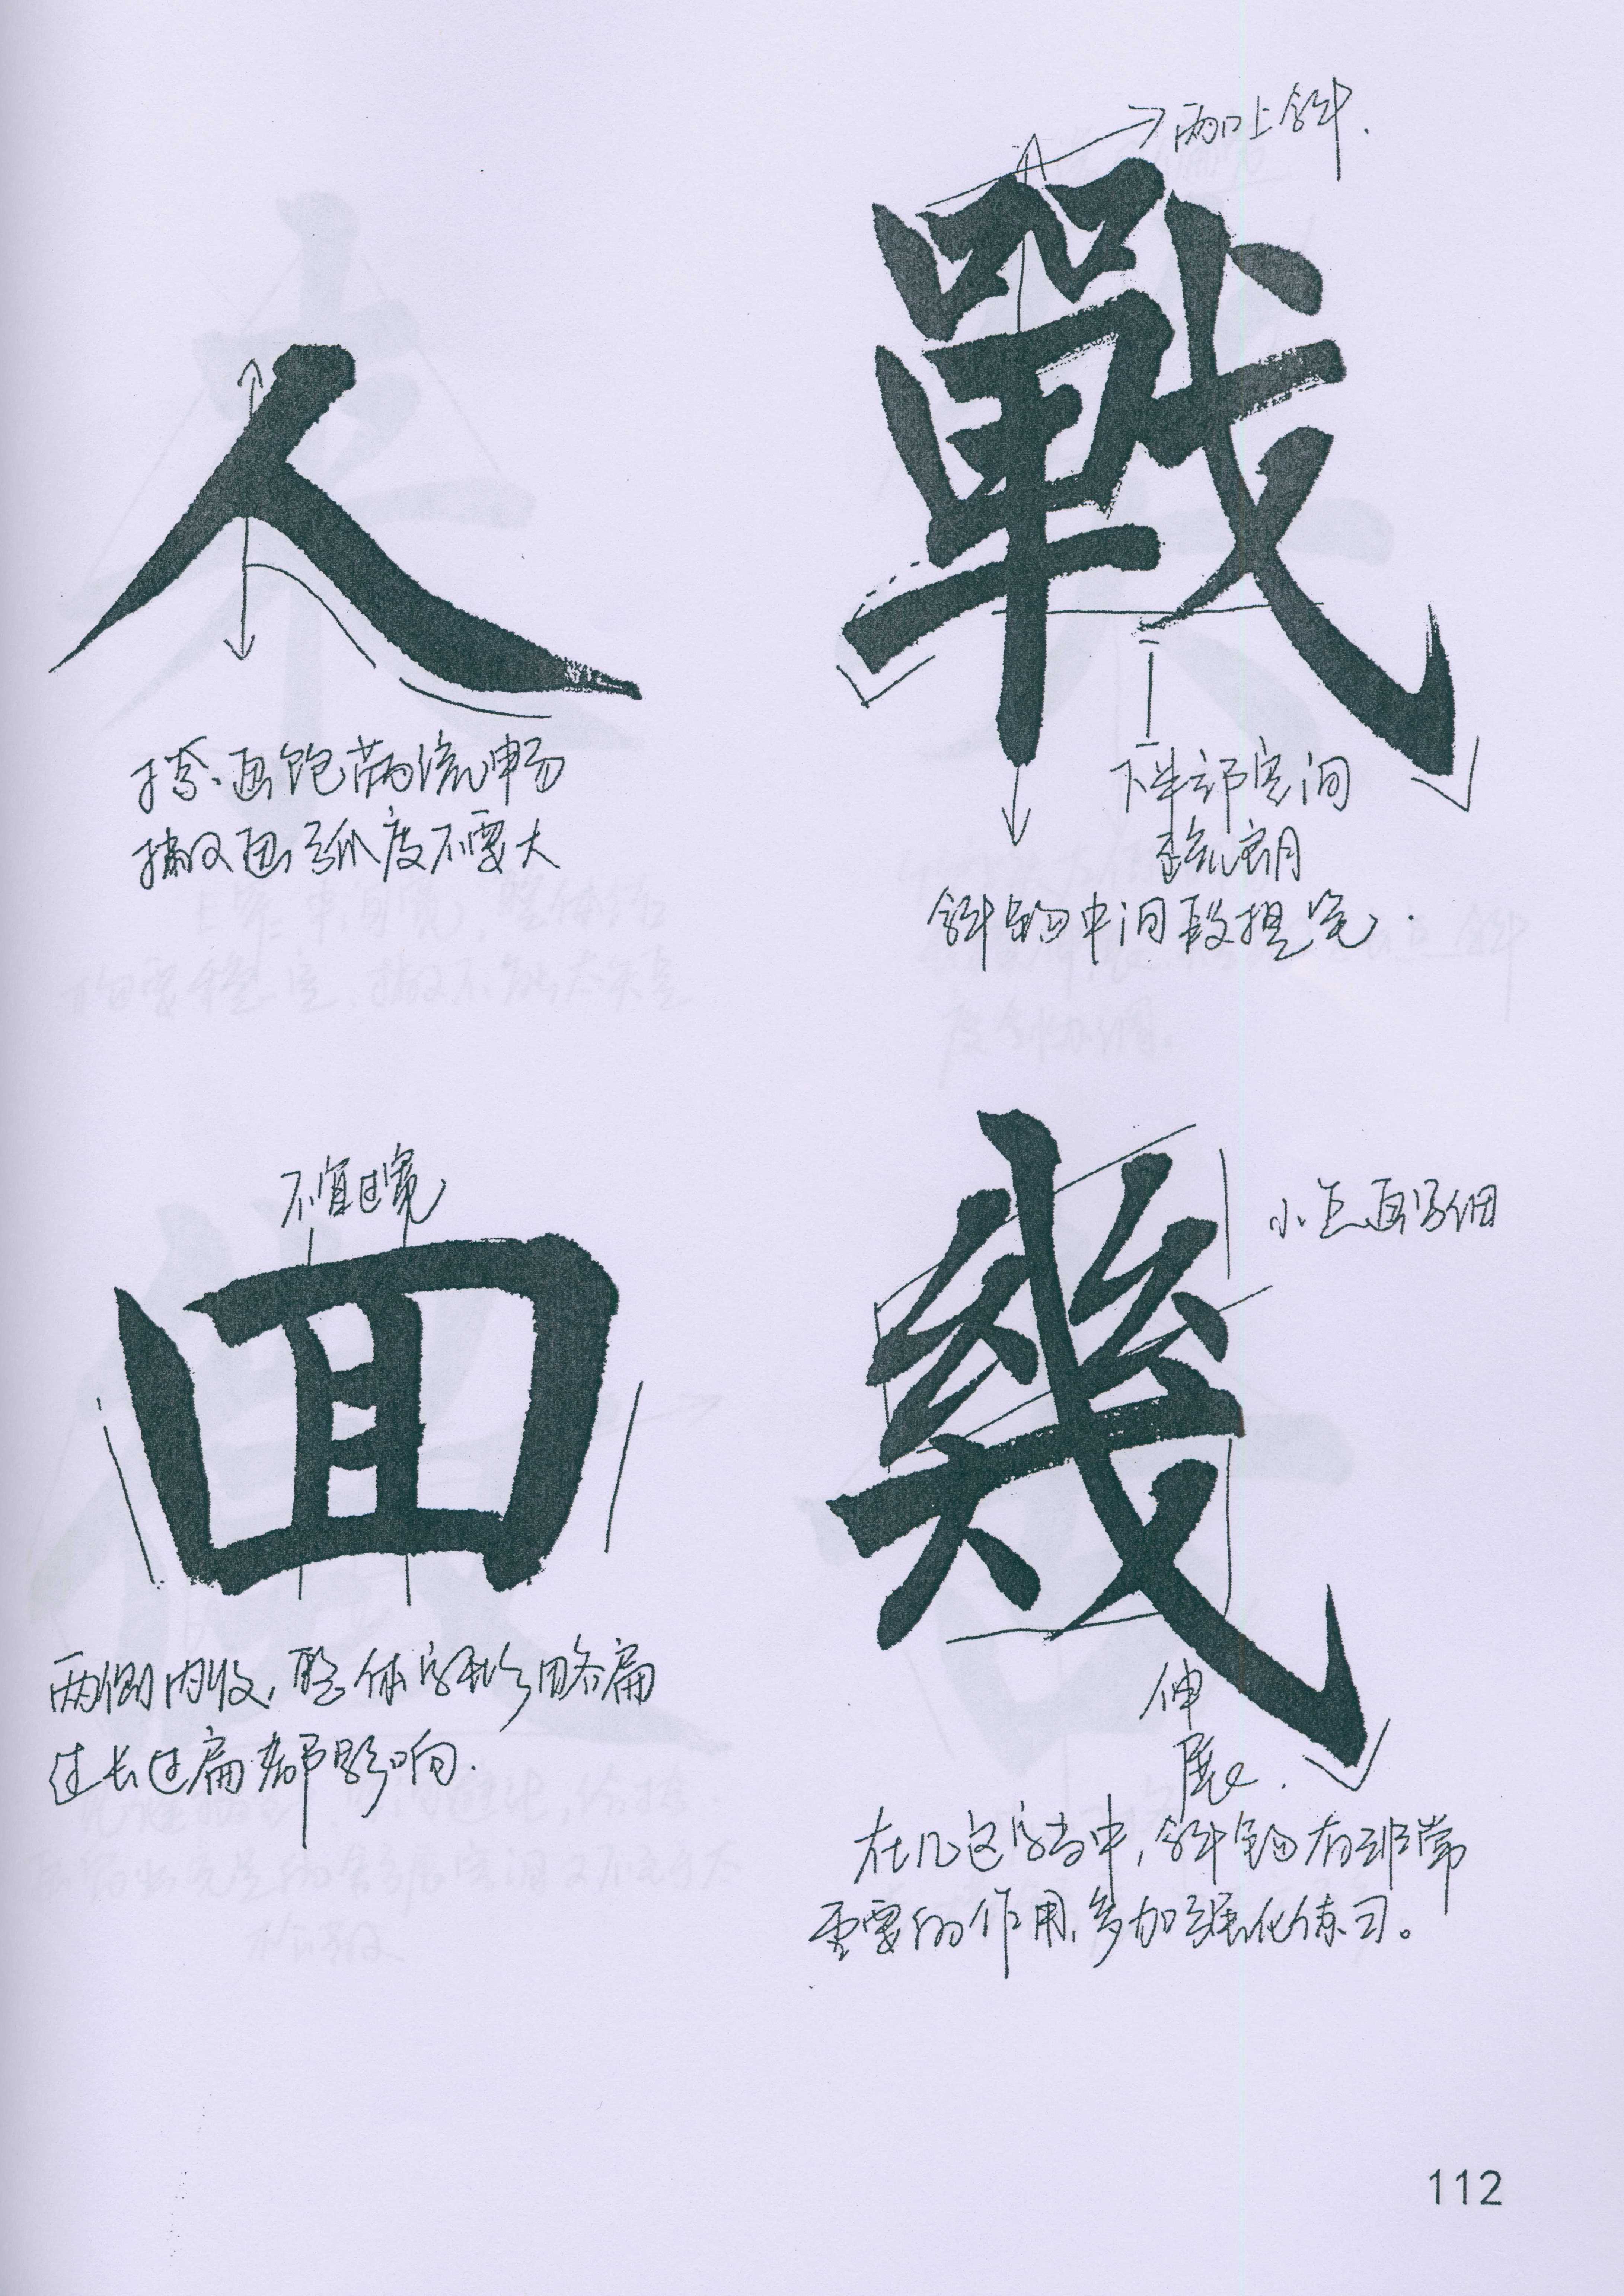 戰
两口上斜.
下半部空间
疏朗
斜钩中间段提笔.
人
捺画饱满流畅
撇画弧度不要大
幾
小短画写细
伸
展.
在几这字当中,斜钩有非常
重要的作用,多加强化练习。
回
不宜过宽
两侧内收,整体字形略扁
过长过扁都影响.
112